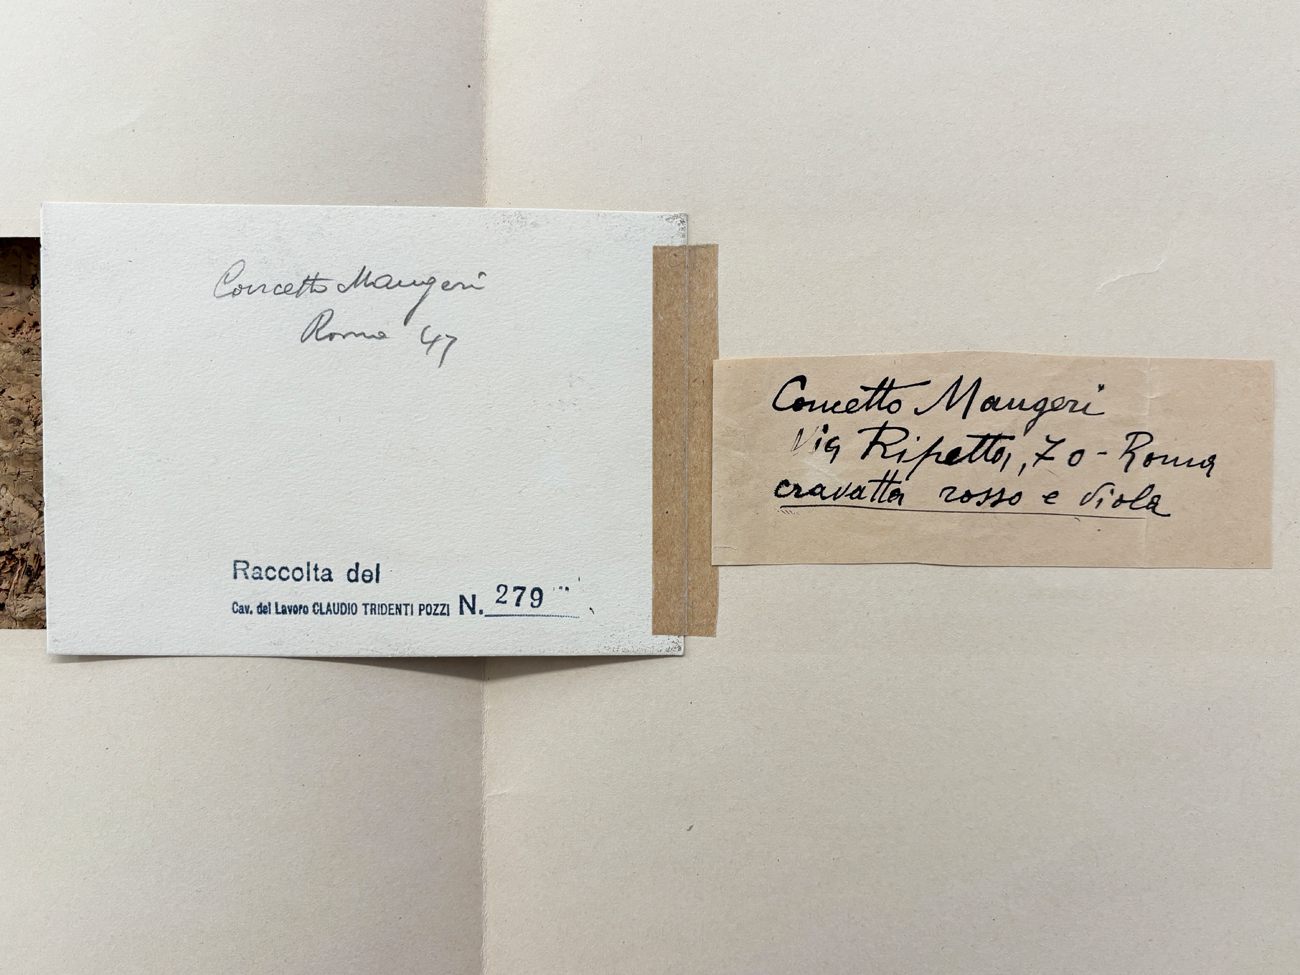 Concetto Maugeri
Roma 47
Raccolta del
Cav. del Lavoro CLAUDIO TRIDENTI POZZI N. 279
Concetto Maugeri
Via Ripetta, 70 - Roma
cravatta rosso e viola